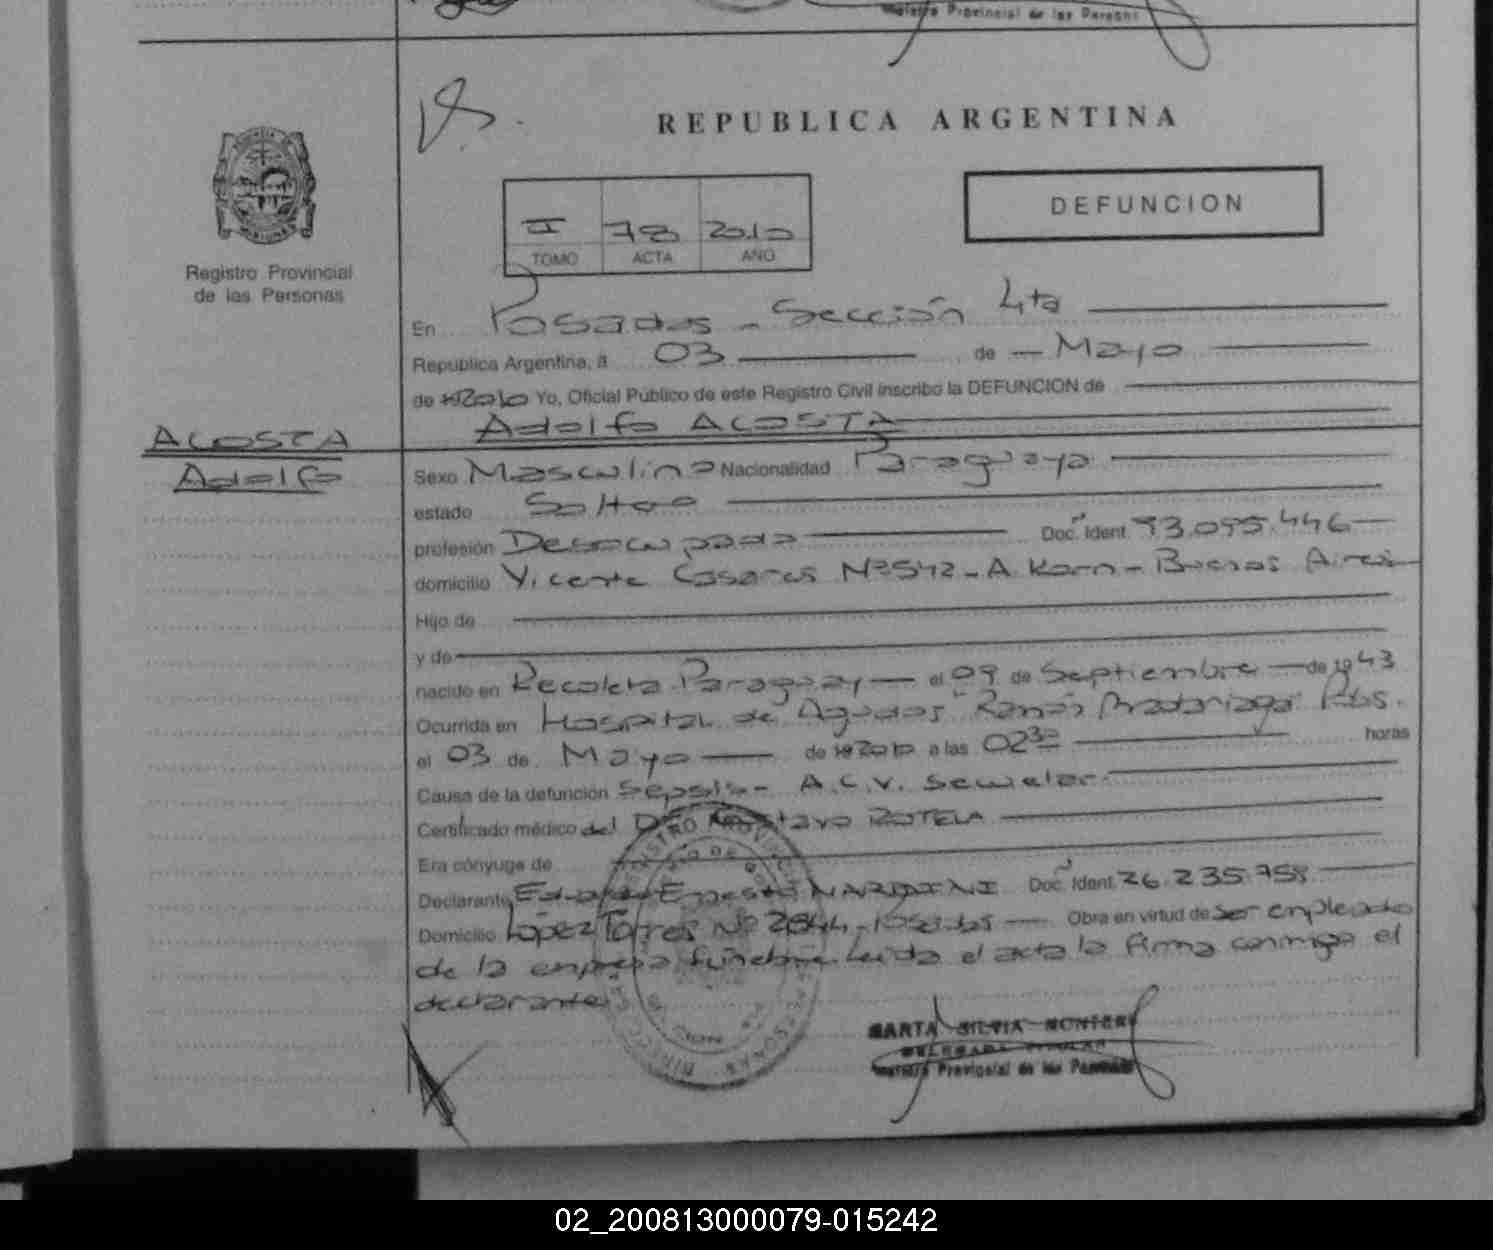 Registro Provincial de las Personas
REPUBLICA ARGENTINA
DEFUNCION
II 78 2010
TOMO ACTA AÑO
Registro Provincial
de las Personas
En Posadas - Sección 4ta
República Argentina, a 03 de Mayo
de 2010 Yo, Oficial Público de este Registro Civil inscribo la DEFUNCION de
Adolfo ACOSTA
ACOSTA
Adolfo
Sexo Masculino Nacionalidad Paraguaya
estado Soltero
profesión Desocupado Doc. Ident. 93.095.446
domicilio Vicente Casares Nº 542 - A. Korn - Buenos Aires
Hijo de
y de
nacido en Recoleta Paraguay el 09 de Septiembre de 1943
Ocurrida en Hospital de Agudos "Ramón Madariaga" Pdas.
el 03 de Mayo de 2010 a las 02 30 horas
Causa de la defunción Sepsis - A.C.V. Secuelar
Certificado médico del Dr. Gustavo ROTELA
Era cónyuge de
Declarante Ernesto NARDINI Doc. Ident. 26.235.758
Domicilio López Torres Nº 2844 - Posadas Obra en virtud de ser empleado
de la empresa fúnebre. Leída el acta la firma conmigo el
declarante
MARTA SILVIA
DELEGADA TITULAR
Registro Provincial de las Personas
02_200813000079-015242